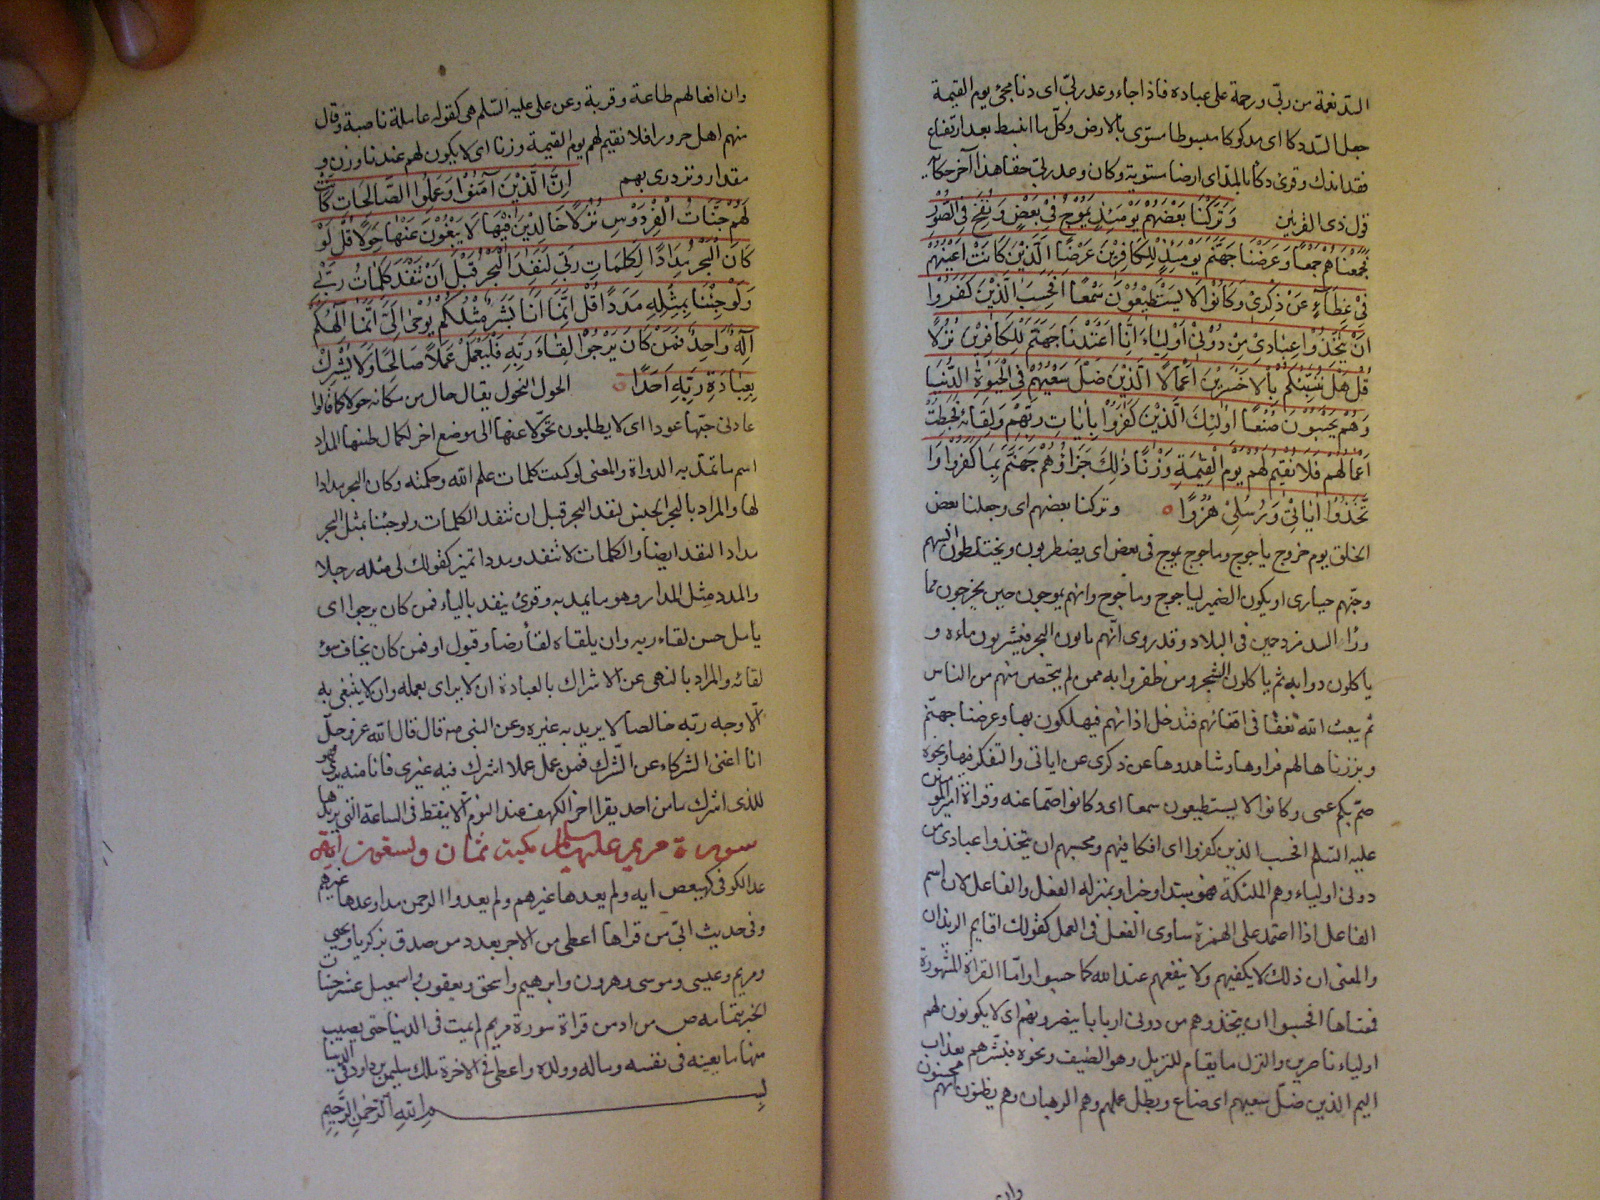 السد نعمة من ربى ورحمة على عباده فاذا جاء وعد ربى اى دنا مجئ يوم القيمة
جعل السد دكا اى مدكوكا مبسوطا مستوى بالارض وكل ما انبسط بعد ارتفاع
فقد اندك وقرئ دكاء بالمد اى ارضا مستوية وكان وعد ربى حقا هذا آخر حكاية
قول ذى القرنين وَتَرَكْنَا بَعْضَهُمْ يَوْمَئِذٍ يَمُوجُ فِى بَعْضٍ وَنُفِخَ فِى الصُّوْرِ
فَجَمَعْنَاهُمْ جَمْعًا وَعَرَضْنَا جَهَنَّمَ يَوْمَئِذٍ لِلْكَافِرِيْنَ عَرْضًا الَّذِيْنَ كَانَتْ اَعْيُنُهُمْ
فِى غِطَآءٍ عَنْ ذِكْرِى وَكَانُوْا لَا يَسْتَطِيْعُوْنَ سَمْعًا اَفَحَسِبَ الَّذِيْنَ كَفَرُوْا
اَنْ يَتَّخِذُوْا عِبَادِى مِنْ دُوْنِى اَوْلِيَاءَ اِنَّا اَعْتَدْنَا جَهَنَّمَ لِلْكَافِرِيْنَ نُزُلًا
قُلْ هَلْ نُنَبِّئُكُمْ بِالْاَخْسَرِيْنَ اَعْمَالًا الَّذِيْنَ ضَلَّ سَعْيُهُمْ فِى الْحَيٰوةِ الدُّنْيَا
وَهُمْ يَحْسَبُوْنَ صُنْعًا اُولٰئِكَ الَّذِيْنَ كَفَرُوْا بِاٰيَاتِ رَبِّهِمْ وَلِقَائِهِ فَحَبِطَتْ
اَعْمَالُهُمْ فَلَا نُقِيْمُ لَهُمْ يَوْمَ الْقِيٰمَةِ وَزْنًا ذٰلِكَ جَزَاؤُهُمْ جَهَنَّمُ بِمَا كَفَرُوْا وَا
تَّخَذُوْا اٰيَاتِى وَرُسُلِى هُزُوًا وتركنا بعضهم اى وجعلنا بعض
الخلق يوم خروج ياجوج وماجوج يموج فى بعض اى يضطربون ويختلطون انسهم
وجنهم حيارى او يكون الضمير لياجوج وماجوج وانهم يموجون حين يخرجون مما
وراء السد مزدحمين فى البلاد وقد روى انهم ياتون البحر فيشربون ماءه و
ياكلون دوابه ثم ياكلون الشجر ومن ظفروا به ممن لم يتحصن منهم من الناس
ثم يبعث الله نغفا فى اقفائهم فتدخل اذانهم فيهلكون بها وعرضنا جهنم
وبرزناها لهم فراوها وشاهدوها عن ذكرى عن اياتى والتفكر فيها ونحوه
صم بكم عمى وكانوا لا يستطيعون سمعا اى وكانوا صما عنه وقراءة امير المؤمنين
عليه السلم افحسب الذين كفروا اى افكافيهم ومحسبهم ان يتخذوا عبادى من
دونى اولياء وهم الملئكة فهو مبتدا وخبر او بمنزلة الفعل والفاعل لان اسم
الفاعل اذا اعتمد على الهمزة ساوى الفعل فى العمل كقولك اقايم الزيدان
والمعنى ان ذلك لا يكفيهم ولا ينفعهم عند الله كما حسبوا واما القراءة المشهورة
فمعناها افحسبوا ان يتخذوهم من دونى اربابا ينصرونهم اى لا يكونون لهم
اولياء ناصرين والنزل ما يقام للنزيل وهو الضيف ونحوه فبشرهم بعذاب
اليم الذين ضل سعيهم اى ضاع وبطل عملهم وهم الرهبان وهم يظنون انهم محسنون
وان
وان افعالهم طاعة وقربة وعن على عليه السلم هى كقوله عاملة ناصبة وقال
منهم اهل حرورا فلا نقيم لهم يوم القيمة وزنا اى لا يكون لهم عندنا وزن و
مقدار ونزدرى بهم اِنَّ الَّذِيْنَ اٰمَنُوْا وَعَمِلُوا الصَّالِحَاتِ كَانَتْ
لَهُمْ جَنَّاتُ الْفِرْدَوْسِ نُزُلًا خَالِدِيْنَ فِيْهَا لَا يَبْغُوْنَ عَنْهَا حِوَلًا قُلْ لَوْ
كَانَ الْبَحْرُ مِدَادًا لِكَلِمَاتِ رَبِّى لَنَفِدَ الْبَحْرُ قَبْلَ اَنْ تَنْفَدَ كَلِمَاتُ رَبِّى
وَلَوْ جِئْنَا بِمِثْلِهِ مَدَدًا قُلْ اِنَّمَا اَنَا بَشَرٌ مِثْلُكُمْ يُوْحٰى اِلَىَّ اَنَّمَا اِلٰهُكُمْ
اِلٰهٌ وَاحِدٌ فَمَنْ كَانَ يَرْجُوْا لِقَاءَ رَبِّهِ فَلْيَعْمَلْ عَمَلًا صَالِحًا وَلَا يُشْرِكْ
بِعِبَادَةِ رَبِّهِ اَحَدًا الحول التحول يقال حال من مكانه حولا كما قالوا
عادنى حبها عودا اى لا يطلبون تحولا عنها الى موضع اخر لكمال طيبها المداد
اسم ما تمد به الدواة والمعنى لو كتبت كلمات علم الله وحكمته وكان البحر مدادا
لها والمراد بالبحر الجنس لنفد البحر قبل ان تنفد الكلمات ولو جئنا بمثل البحر
مدادا لنفد ايضا والكلمات لا تنفد ومددا تميز كقولك لى مثله رجلا
والمدد مثل المداد وهو ما يمد به وقرئ ينفد بالياء فمن كان يرجوا اى
يامل حسن لقاء ربه وان يلقاه لقاء رضا وقبول او فمن كان يخاف سوء
لقائه والمراد بالنهى عن الاشراك بالعبادة ان لا يراى بعمله وان لا يبتغى به
الا وجه ربه خالصا لا يريد به غيره وعن النبى ص قال قال الله عز وجل
انا اغنى الشركاء عن الشرك فمن عمل عملا اشرك فيه غيرى فانا منه برئ فهو
للذى اشرك ما من احد يقرا اخر الكهف عند النوم الا تيقظ فى الساعة التى يريدها
سورة مريم عليها السلم مكية ثمان وتسعون اية
عد الكوفى كهيعص اية ولم يعدها غيرهم ولم يعدوا الرحمن مدا وعدها غيرهم
وفى حديث ابى من قراها اعطى من الاجر بعدد من صدق بزكريا ويحيى
ومريم وعيسى وموسى وهرون وابرهيم واسحق ويعقوب واسمعيل عشر حسنات
الخبر بتمامه ص من ادمن قراءة سورة مريم لم يمت فى الدنيا حتى يصيب
منها ما يعينه فى نفسه وماله وولده واعطى فى الاخرة ملك سليمن بن داود فى الدنيا
بِسْمِ اللهِ الرَّحْمٰنِ الرَّحِيْمِ